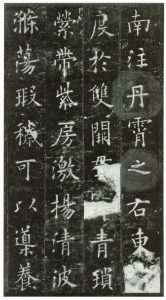 南注丹霄之右東
度於雙闕青瑣
縈帶紫房激揚清波
滌蕩瑕穢可以導養